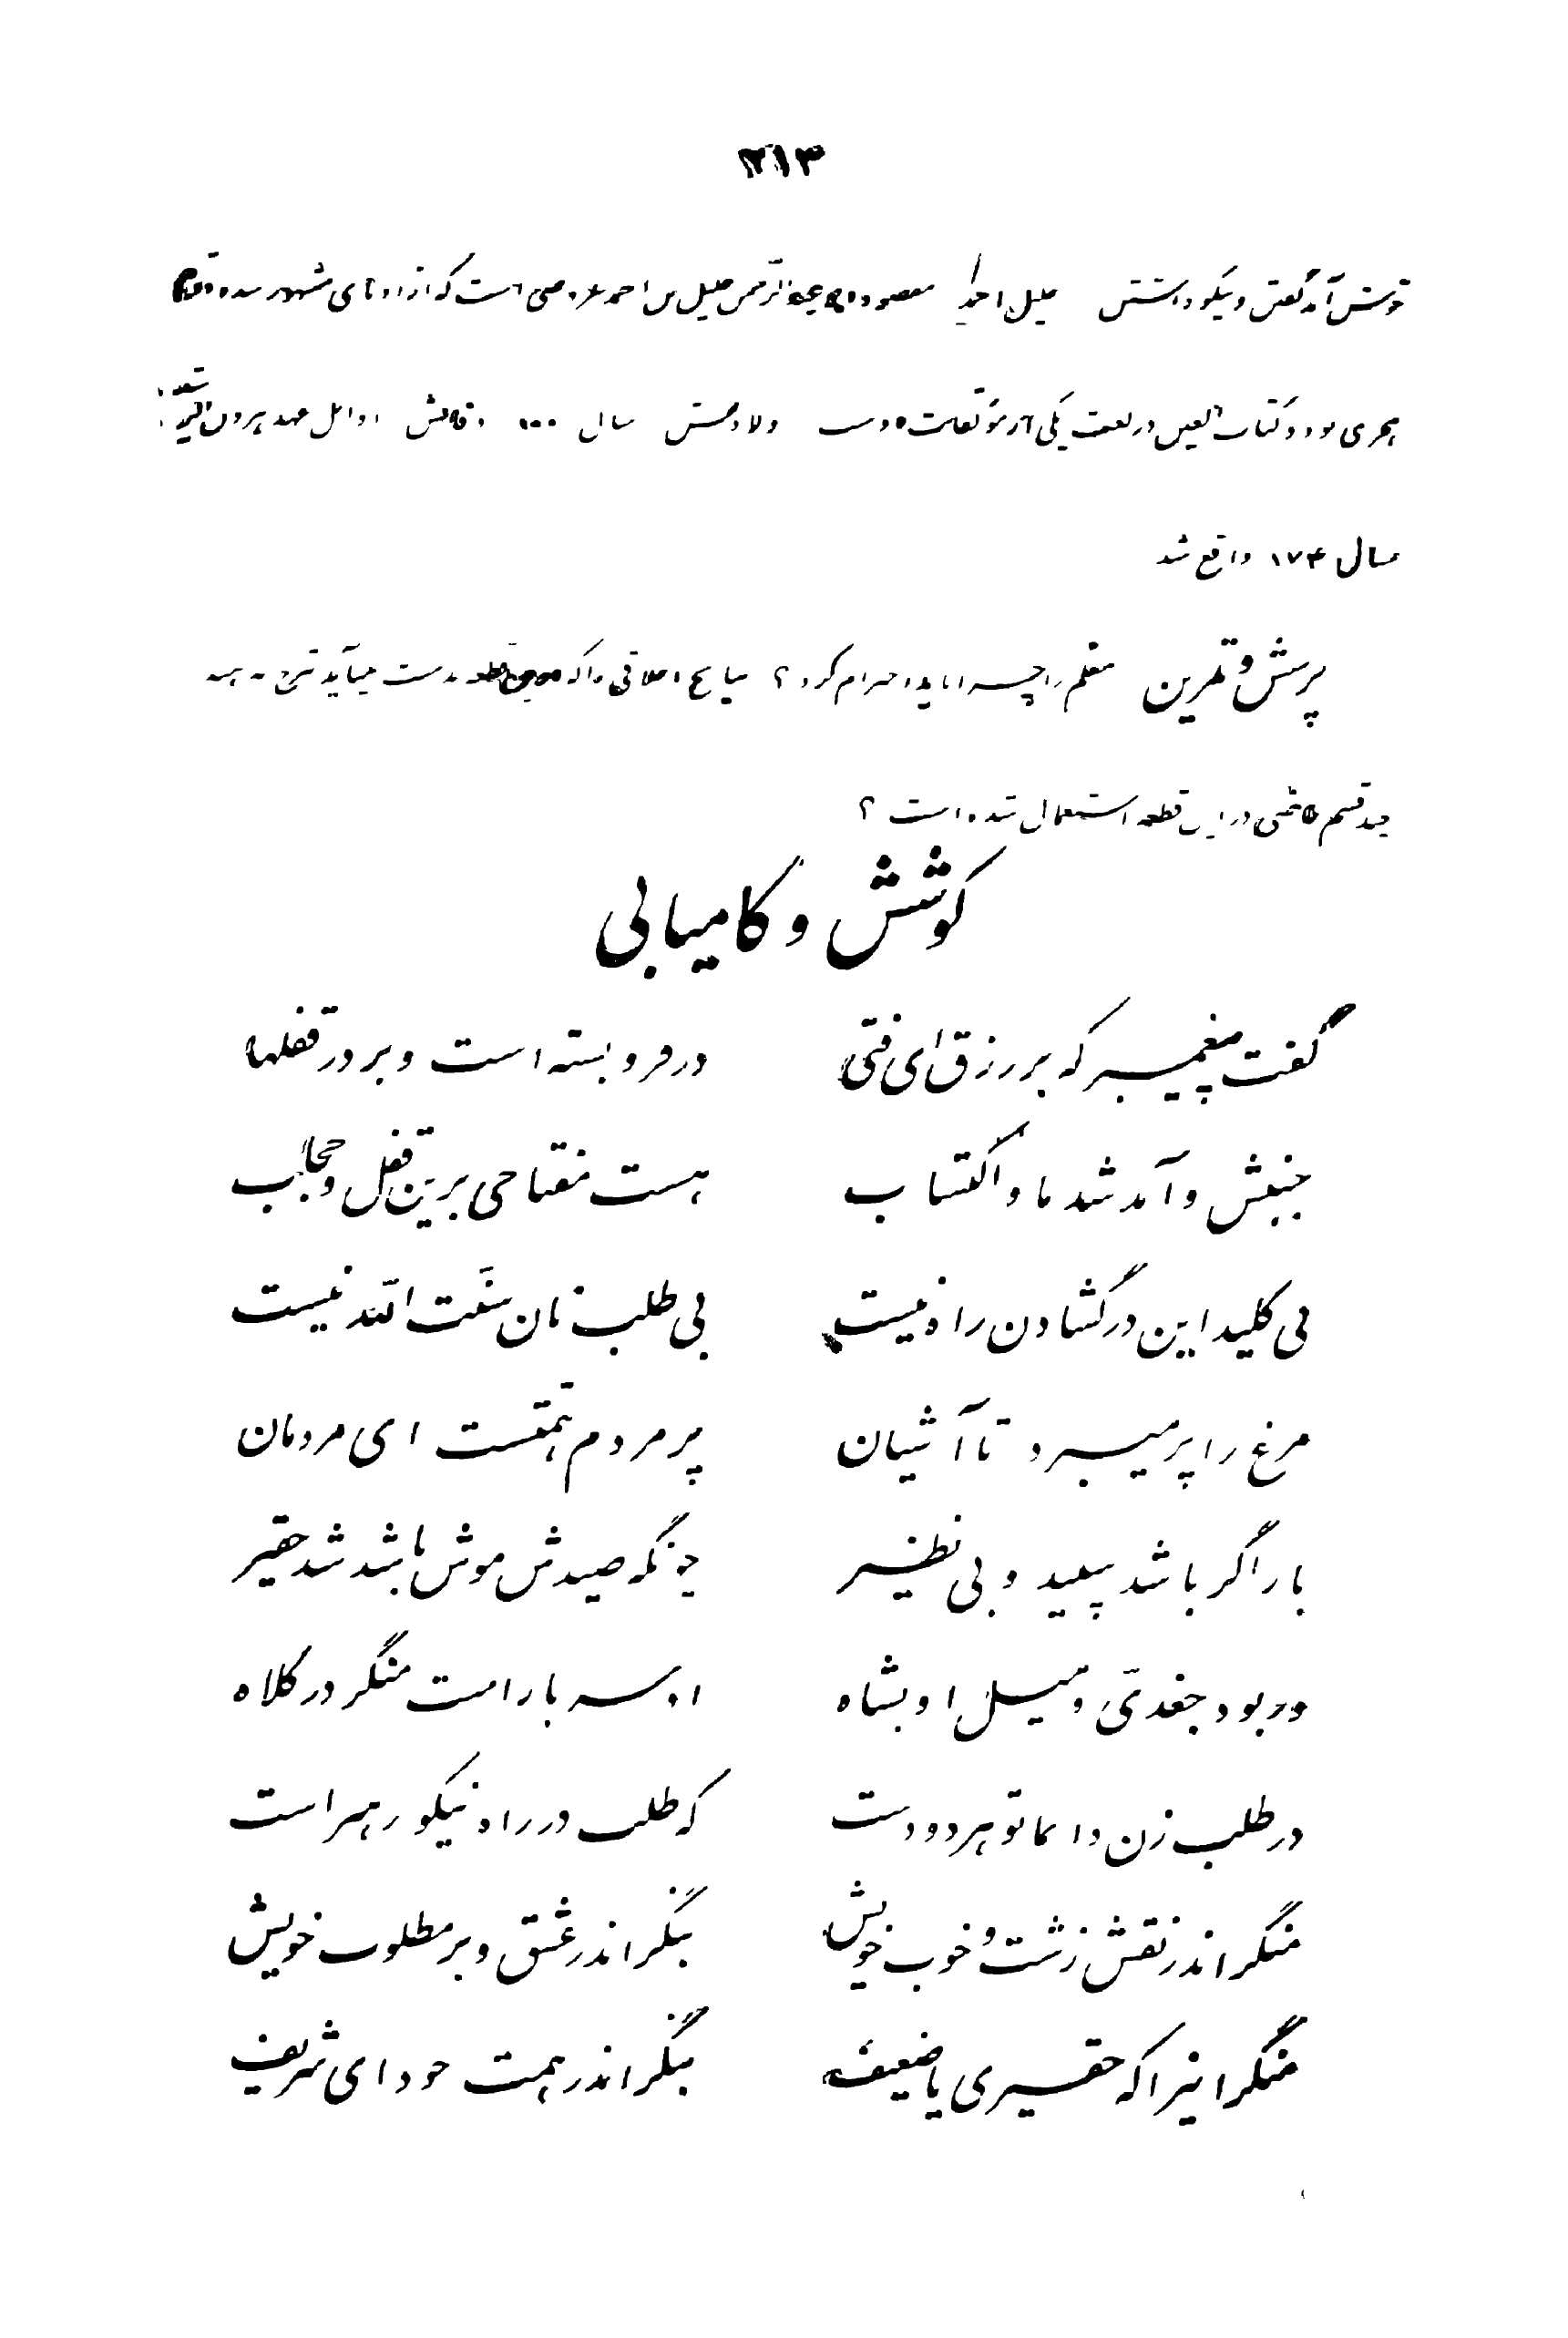 ۲۱۳
خوش آمد گفتن و نیکو داشتن خلیل احمد مقصود ابو عبدالرحمن خلیل بن احمد عروضی است که از ادبای مشهور سده دوم
هجری بود و کتاب العین در لغت یکی از مؤلفات اوست ولادتش سال ۱۰۰ وفاتش اوایل عهد هرون الرشید
سال ۱۷۴ واقع شد
پرسش و تمرین معلم را چرا باید احترام کرد؟ نتایج اخلاقی را که از این قطعه بدست میآید شرح دهید
چند قسم ماضی در این قطعه استعمال شده است؟
کوشش و کامیابی
گفت پیغمبر که بر رزق ای فتی در فرو بسته است و بر در قفلها
جنبش و آمد شد ما و اکتساب هست مفتاحی برین قفل و حجاب
بی کلید این در گشادن راه نیست بی طلب نان سنّت اللّه نیست
مرغ را پر میبرد تا آشیان پر مردم همّتست ای مردمان
باز اگر باشد سپید و بی نظیر چونکه صیدش موش باشد شد حقیر
ور بود جغدی و میل او بشاه او سر باز است منگر در کلاه
در طلب زن دائما تو هر دو دست که طلب در راه نیکو رهبر است
منگر اندر نقش زشت و خوب خویش بنگر اندر عشق و بر مطلوب خویش
منگر اینرا که حقیری یا ضعیف بنگر اندر همت خود ای شریف